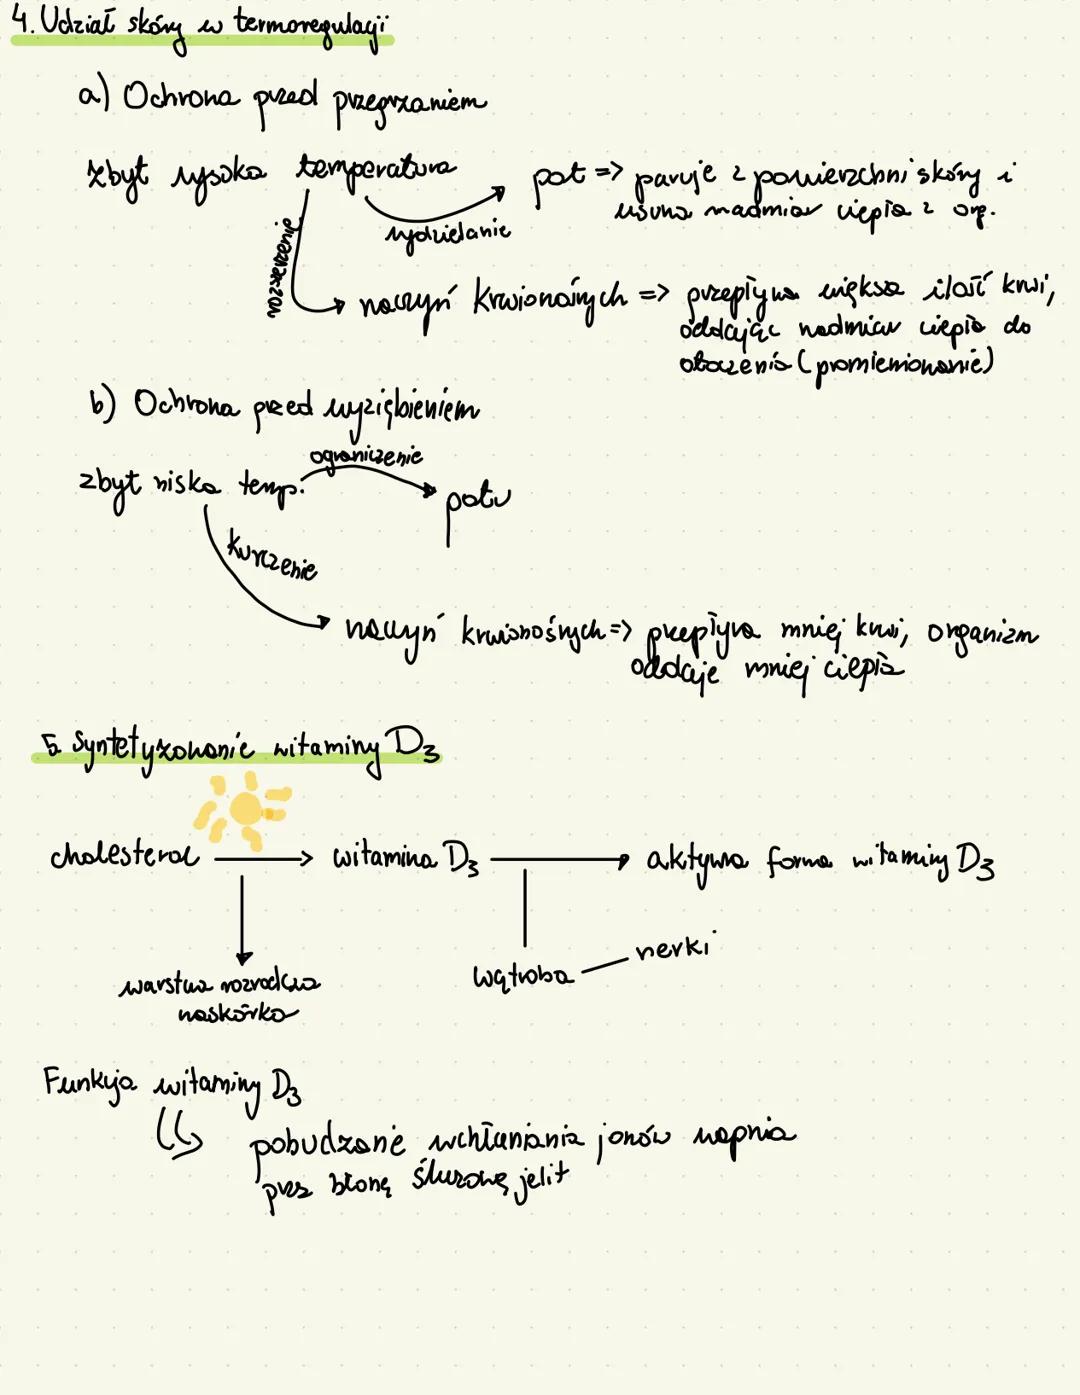 4. Udział skóry w termoregulacji
a) Ochrona przed przegrzaniem
zbyt wysoka temperatura
pot => paruje z powierzchni skóry i
usuwa nadmiar ciepła z org.
wydzielanie
rozszerzenie
naczyń krwionośnych => przepływa większa ilość krwi,
oddając nadmiar ciepła do
otoczenia (promieniowanie)
b) Ochrona przed wyziębieniem
ograniczenie
zbyt niska temp.
potu
kurczenie
naczyń krwionośnych => przepływa mniej krwi, organizm
oddaje mniej ciepła
5. Syntetyzowanie witaminy D3
cholesterol
witamina D3
aktywna forma witaminy D3
nerki
wątroba
warstwa rozrodcza
naskórka
Funkcja witaminy D3
pobudzanie wchłaniania jonów wapnia
przez błonę śluzową jelit